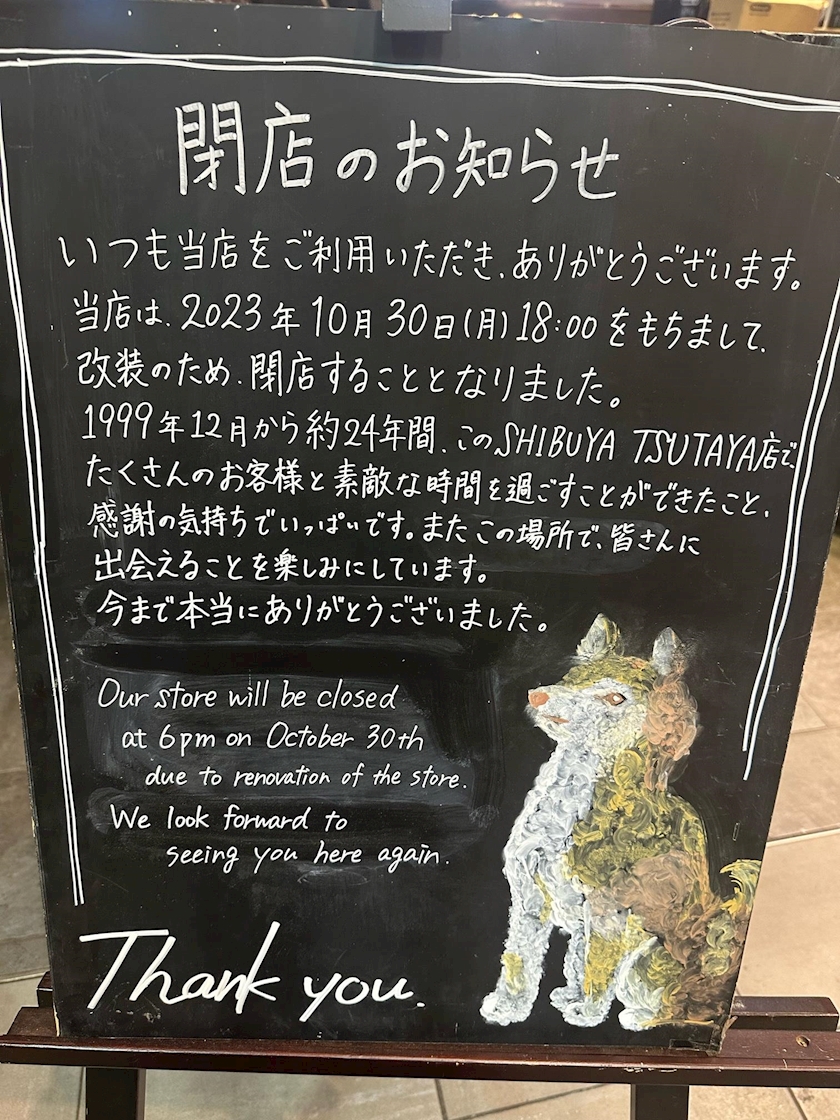 閉店のお知らせ
いつも当店をご利用いただき、ありがとうございます。
当店は、2023年10月30日(月)18:00をもちまして、
改装のため、閉店することとなりました。
1999年12月から約24年間、このSHIBUYA TSUTAYA店で、
たくさんのお客様と素敵な時間を過ごすことができたこと、
感謝の気持ちでいっぱいです。またこの場所で、皆さんに
出会えることを楽しみにしています。
今まで本当にありがとうございました。
Our store will be closed
at 6pm on October 30th
due to renovation of the store.
We look forward to
seeing you here again.
Thank you.